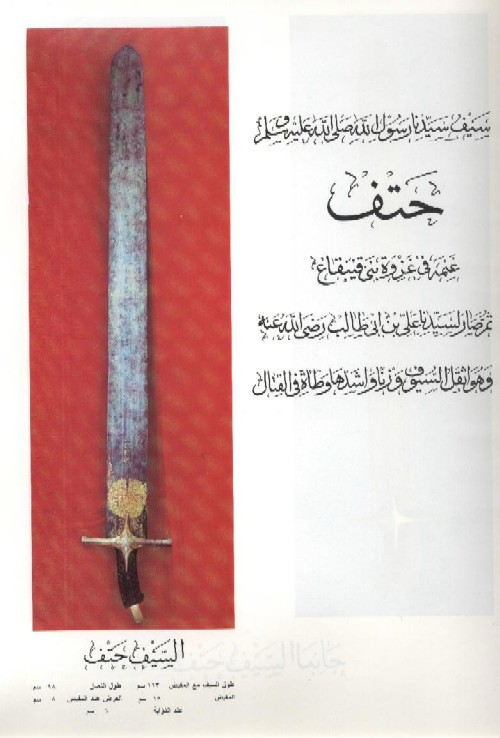 سَيْف سَيِّدنا رَسُول الله صَلى الله عَليهِ وسَلم
حَتف
غنمه في غزوة بني قينقاع
ثم صار لسيدنا علي بن ابي طالب رضي الله عنه
وهو اثقل السيوف وزنا واشدها وطأة في القتال
السيف حتف
طول السيف مع المقبض ١١٣ سم طول النصل ٩٨ سم
المقبض ١٥ سم العرض عند المقبض ٨ سم
عند الذؤابة ٦ سم
جانبا السيف حتف